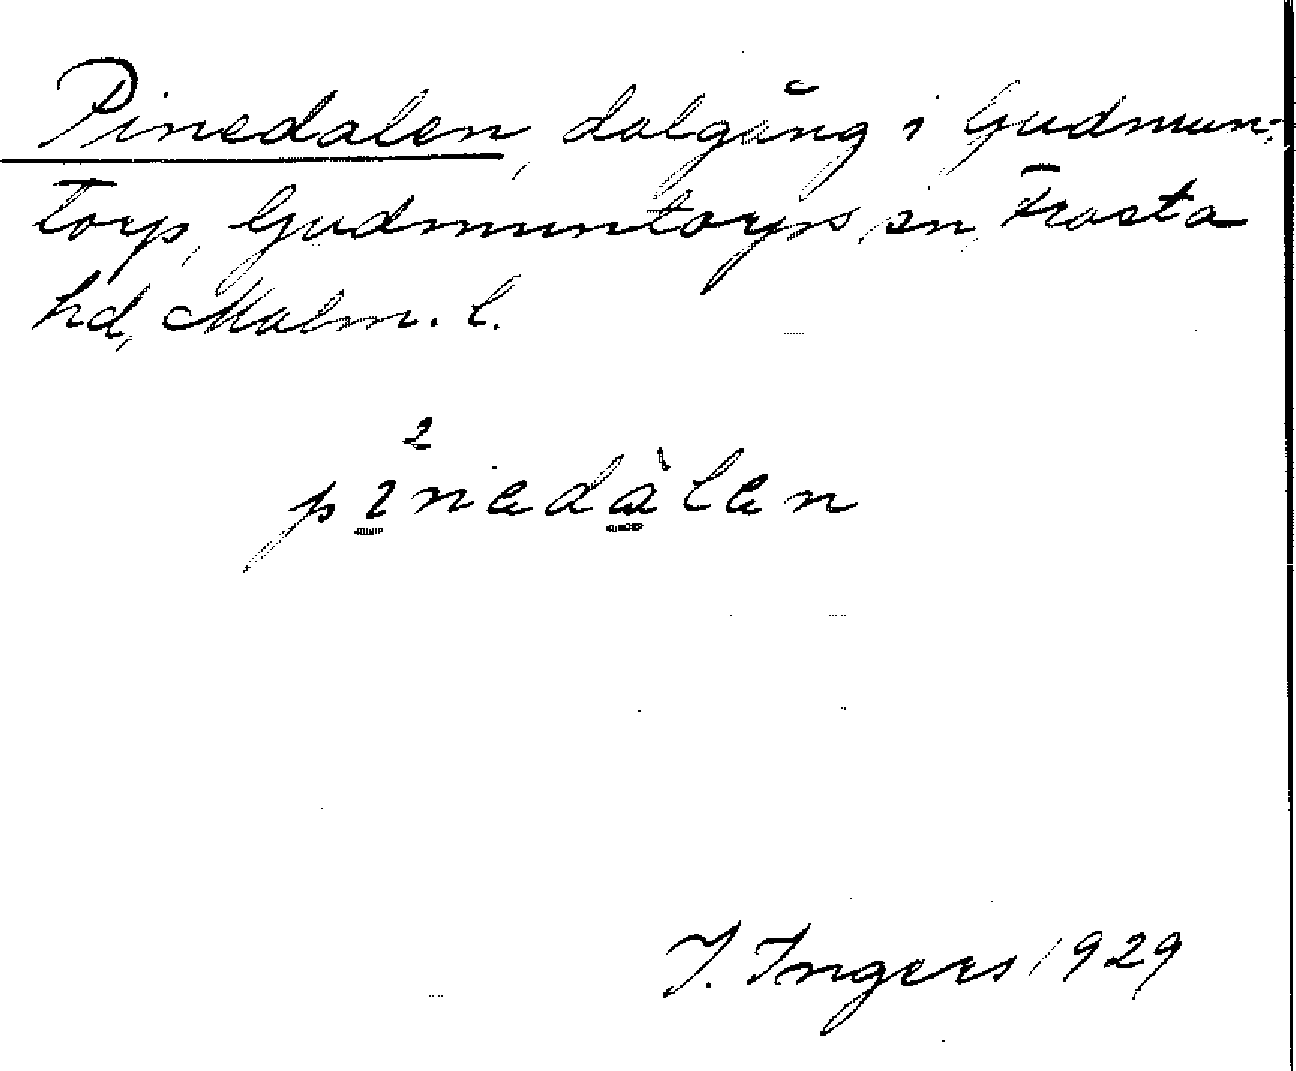 Pinedalen, dalgång i Gudmun-
torp, Gudmuntorps sn, Frosta
hd, Malm. l.
pi²nedàlen
I. Ingers 1929